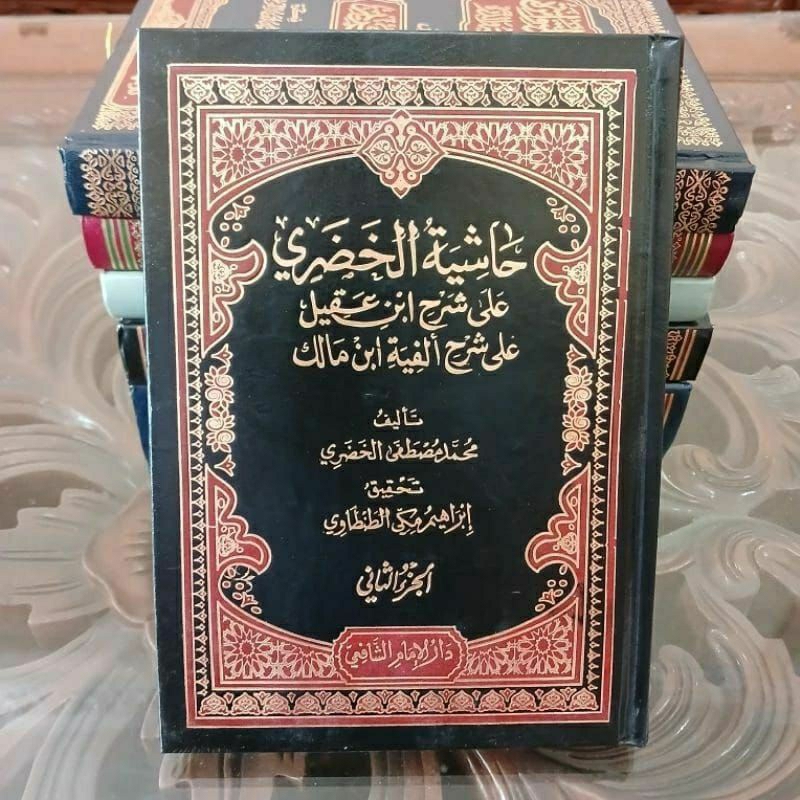 حَاشِيَةُ الخَضَرِي
عَلَى شَرْحِ ابْنِ عَقِيل
عَلَى شَرْحِ أَلفِيَة ابْنُ مَالِك
تَأليفُ
مُحَمَّد مُصْطَفَى الخَضَرِي
تَحْقِيق
إبْرَاهِيم مَكِي الطَنْطَاوِي
الجُزْءُ الثَانِي
دَارُ الإِمَامِ الشَّافِعِيّ